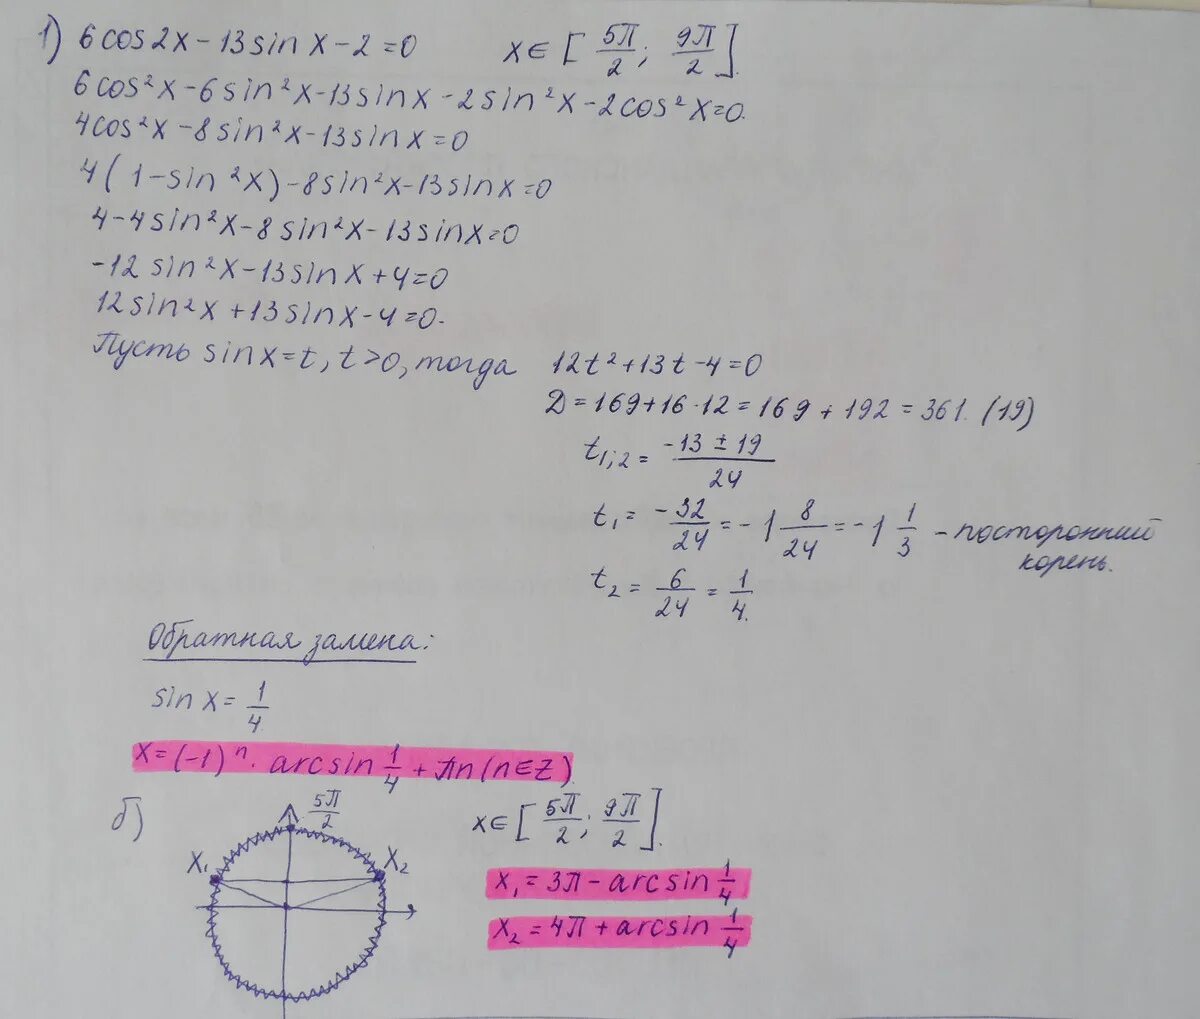 1) 6cos2x-13sinx-2=0 x∈[5π/2; 9π/2].
6cos²x-6sin²x-13sinx-2sin²x-2cos²x=0.
4cos²x-8sin²x-13sinx=0
4(1-sin²x)-8sin²x-13sinx=0
4-4sin²x-8sin²x-13sinx=0
-12sin²x-13sinx+4=0
12sin²x+13sinx-4=0.
Пусть sinx=t, t>0, тогда 12t²+13t-4=0
Д=169+16·12=169+192=361. (19)
t₁;₂=(-13±19)/24
t₁=-32/24=-1 8/24=-1 1/3 - посторонний
корень.
t₂=6/24=1/4.
Обратная замена:
sinx=1/4
x=(-1)ⁿ·arcsin 1/4+πn(n∈Z).
б) 5π/2 x∈[5π/2; 9π/2].
x₁ x₂
x₁=3π-arcsin 1/4
x₂=4π+arcsin 1/4